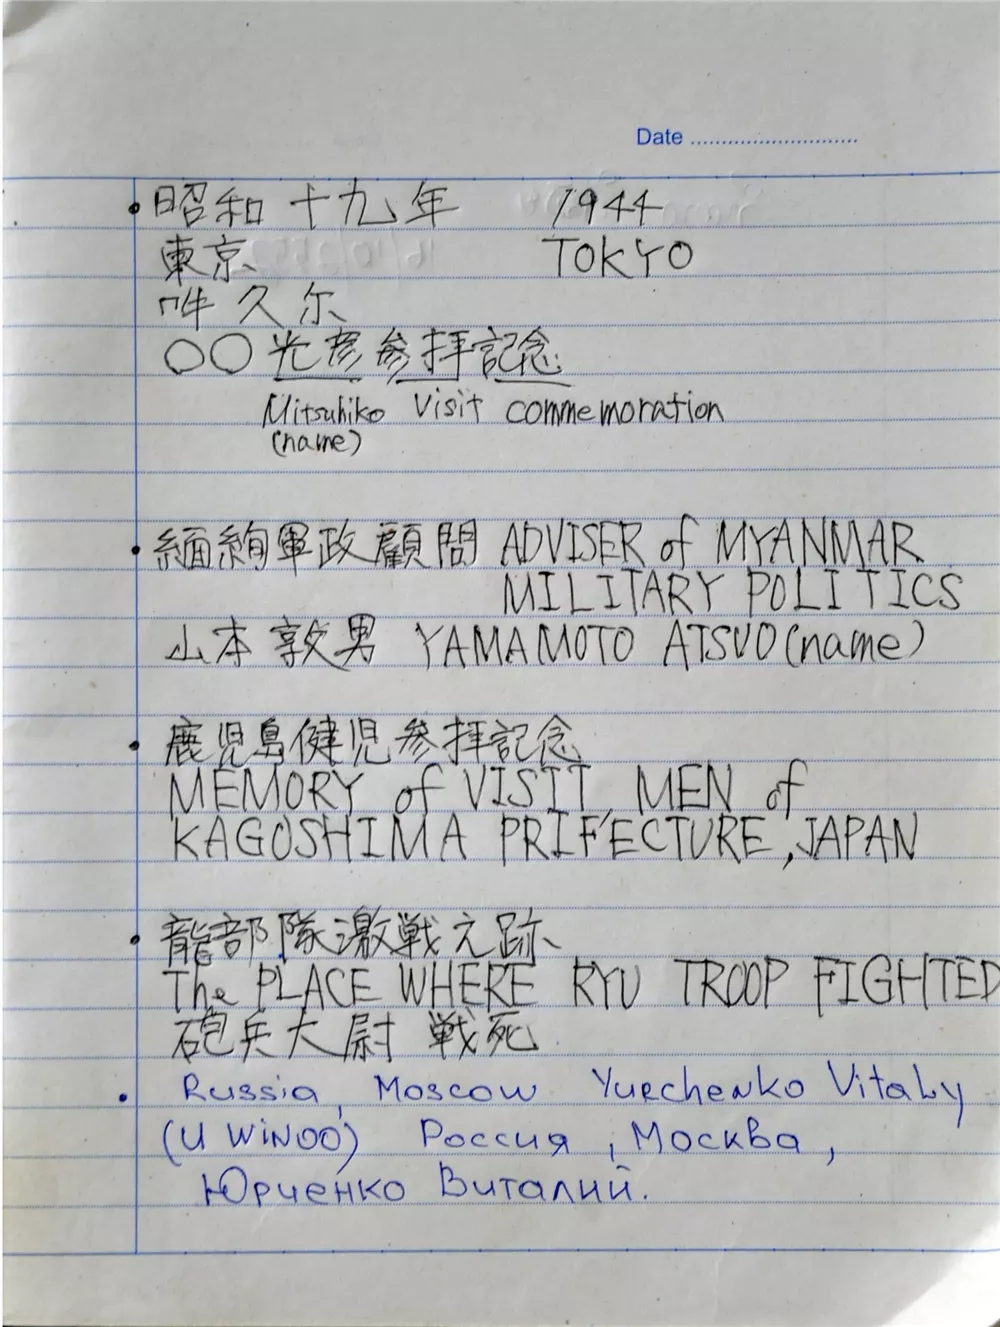 Date
• 昭和十九年 1944
東京 TOKYO
吽 久尔
○○光彦参拝記念
Mitsuhiko Visit commemoration
(name)
• 緬甸軍政顧問 ADVISER of MYANMAR
MILITARY POLITICS
山本敦男 YAMAMOTO ATSUO (name)
• 鹿児島健児参拝記念
MEMORY of VISIT, MEN of
KAGOSHIMA PRIFECTURE, JAPAN
• 龍部隊激戦之跡
The PLACE WHERE RYU TROOP FIGHTED
砲兵大尉 戦死
• Russia, Moscow Yurchenko Vitaly
(U WiNOO) Россия, Москва,
Юрченко Виталий.